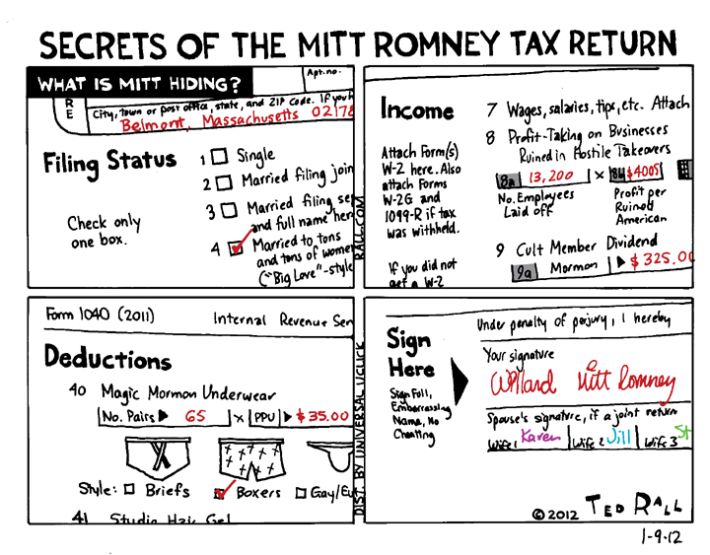 SECRETS OF THE MITT ROMNEY TAX RETURN
WHAT IS MITT HIDING?
Apt. no.
R
E
City, town or post office, state, and ZIP code. If you h
Belmont, Massachusetts 02178
Filing Status
Check only
one box.
1 Single
2 Married filing join
3 Married filing se
and full name her
4 Married to tons
and tons of women
("Big Love"-style
RALL.COM
Income
Attach Form(s)
W-2 here. Also
attach Forms
W-2G and
1099-R if tax
was withheld.
If you did not
get a W-2
7 Wages, salaries, tips, etc. Attach
8 Profit-Taking on Businesses
Ruined in Hostile Takeovers
8a 13,200 x 8b $4005
No. Employees
Laid off
Profit per
Ruined
American
9 Cult Member Dividend
9a Mormon $325.00
Form 1040 (2011) Internal Revenue Ser
Deductions
40 Magic Mormon Underwear
No. Pairs 65 x PPU $35.00
Style: Briefs Boxers Gay/Eu
41 Studio Hair Gel
DIST. BY UNIVERSAL UCLICK
Sign
Here
Sign Full,
Embarrassing
Name, No
Cheating
Under penalty of perjury, I hereby
Your signature
Willard Mitt Romney
Spouse's signature, if a joint return
Wife 1 Karen Wife 2 Jill Wife 3 St
©2012 TED RALL
1-9-12